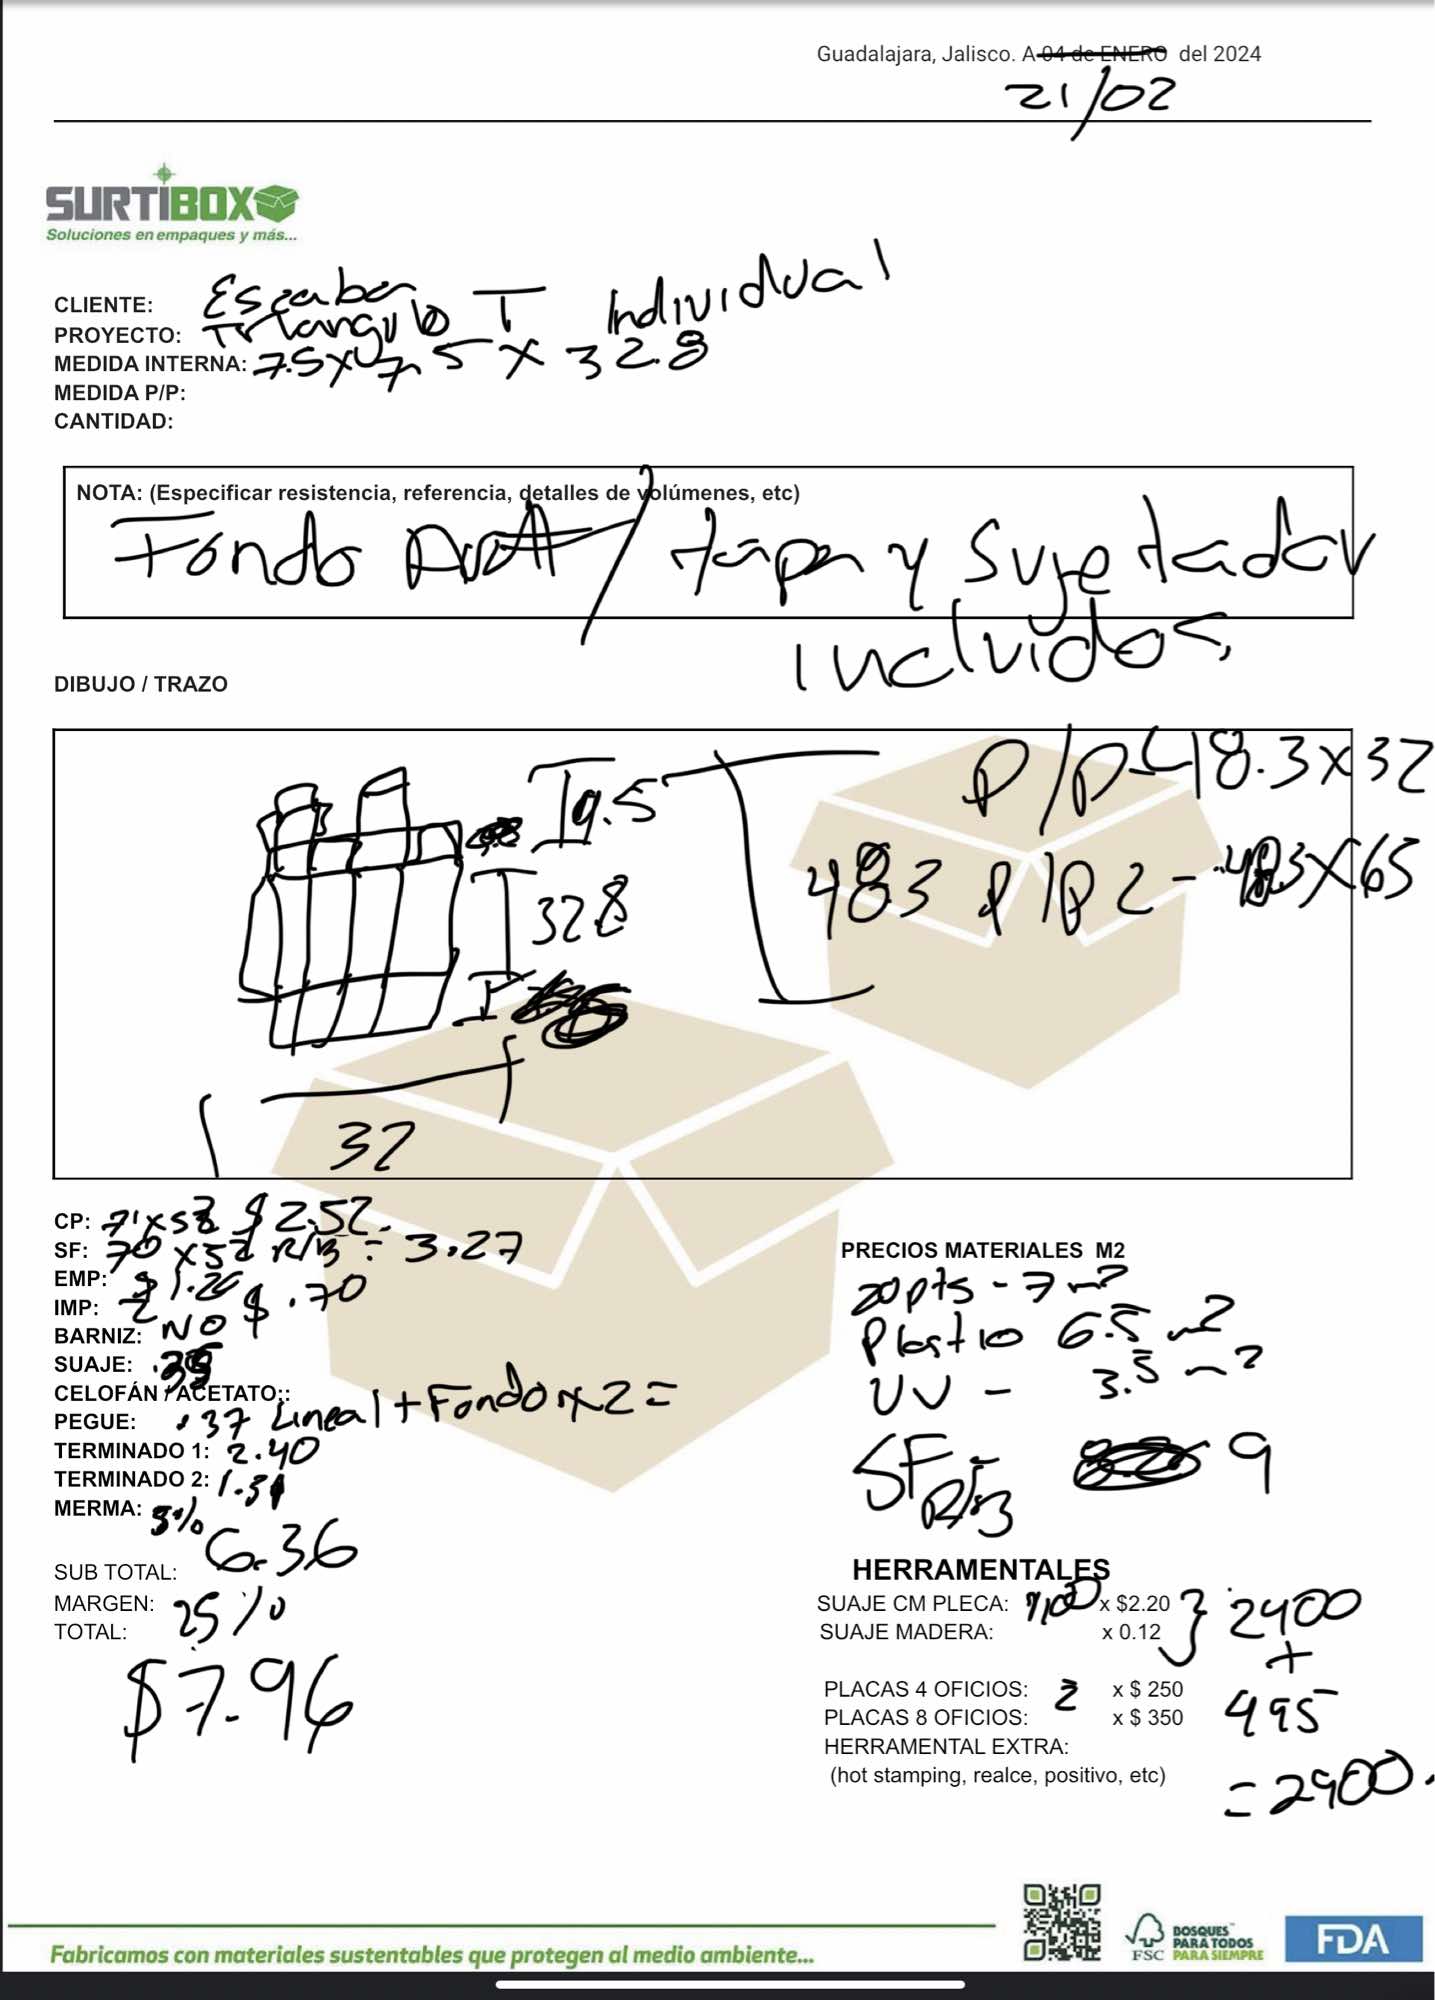 Guadalajara, Jalisco. A 04 de ENERO del 2024
21/02
SURTIBOX
Soluciones en empaques y más...
CLIENTE: Escabar
PROYECTO: Triangulo T Individual
MEDIDA INTERNA: 7.5 x 7.5 x 32.8
MEDIDA P/P:
CANTIDAD:
NOTA: (Especificar resistencia, referencia, detalles de volúmenes, etc)
Fondo / tapa y sujetador
incluidos
DIBUJO / TRAZO
P/P - 48.3 x 32
9.5
483 P/P 2 - 48.3 x 65
328
32
CP: 71 x 58 $ 2.52
SF: 70 x 52 R/B = 3.27
EMP: $ 1.26
IMP: 2 $ .70
BARNIZ: NO
SUAJE:
CELOFÁN / ACETATO::
PEGUE: .37 Lineal + Fondo x 2 =
TERMINADO 1: 2.40
TERMINADO 2:
MERMA: 3%
SUB TOTAL: 6.36
MARGEN: 25%
TOTAL:
$7.96
PRECIOS MATERIALES M2
20 pts - 7 m2
6.5 m2
UV - 3.5 m2
SF R/B 9
HERRAMENTALES
SUAJE CM PLECA: x $2.20 } 2400
SUAJE MADERA: x 0.12
+
PLACAS 4 OFICIOS: 2 x $ 250
PLACAS 8 OFICIOS: x $ 350
495
HERRAMENTAL EXTRA:
(hot stamping, realce, positivo, etc)
= 2900.
Fabricamos con materiales sustentables que protegen al medio ambiente...
FSC
BOSQUES
PARA TODOS
PARA SIEMPRE
FDA